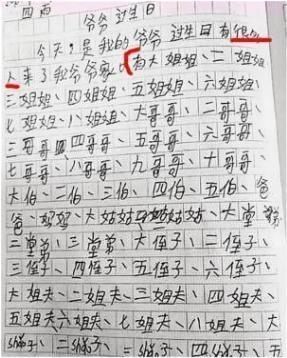 四 西
爷爷过生日
今天,是我的爷爷过生日有很多
人来了我爷爷家,有大姐姐、二姐姐、
三姐姐、四姐姐、五姐姐、六姐姐、
七姐姐、八姐姐、大哥哥、二哥哥、
三哥哥、四哥哥、五哥哥、六哥哥、
七哥哥、八哥哥、九哥哥、十哥哥、
大伯、二伯、三伯、四伯、五伯、爸
爸、妈妈、大姑姑、姑姑、大堂弟
二堂弟、三堂弟、大侄子、二侄子、
三侄子、四侄子、五侄子、六侄子、
大姐夫、二姐夫、三姐夫、四姐夫、
五姐夫六姐夫、七姐夫、八姐夫、大